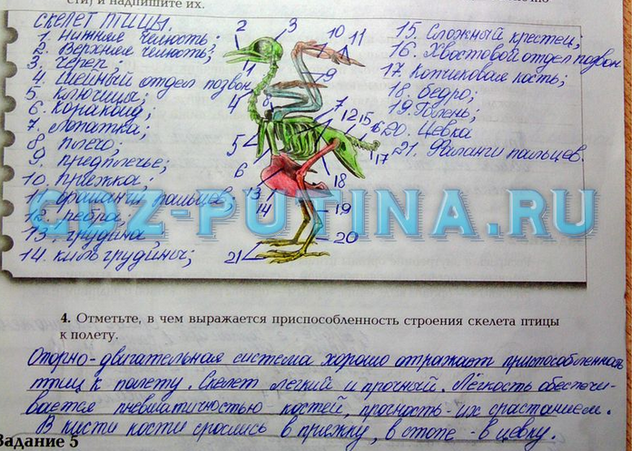 ети) и надпишите их.
СКЕЛЕТ ПТИЦЫ.
1. Нижняя челюсть;
2. Верхняя челюсть;
3. Череп;
4. Шейный отдел позвон.
5. Ключица;
6. Коракоид;
7. Лопатка;
8. Плечо;
9. Предплечье;
10. Пряжка;
11. Фаланги пальцев;
12. Ребра;
13. Грудина
14. киль грудины;
15. Сложный крестец;
16. Хвостовой отдел позвон
17. Копчиковая кость;
18. Бедро;
19. Голень;
20. Цевка
21. Фаланги пальцев.
2 3 10 11
1 9
4 8
7
12 15
16
17
5
6 18
13
14 19
20
21
GDZ-PUTINA.RU
4. Отметьте, в чем выражается приспособленность строения скелета птицы
к полету.
Опорно-двигательная система хорошо отражает приспособленность
птиц к полету. Скелет легкий и прочный. Лёгкость обеспечи-
вается пневматичностью костей, прочность - их срастанием.
В кисти кости срослись в пряжку, в стопе - в цевку.
Задание 5